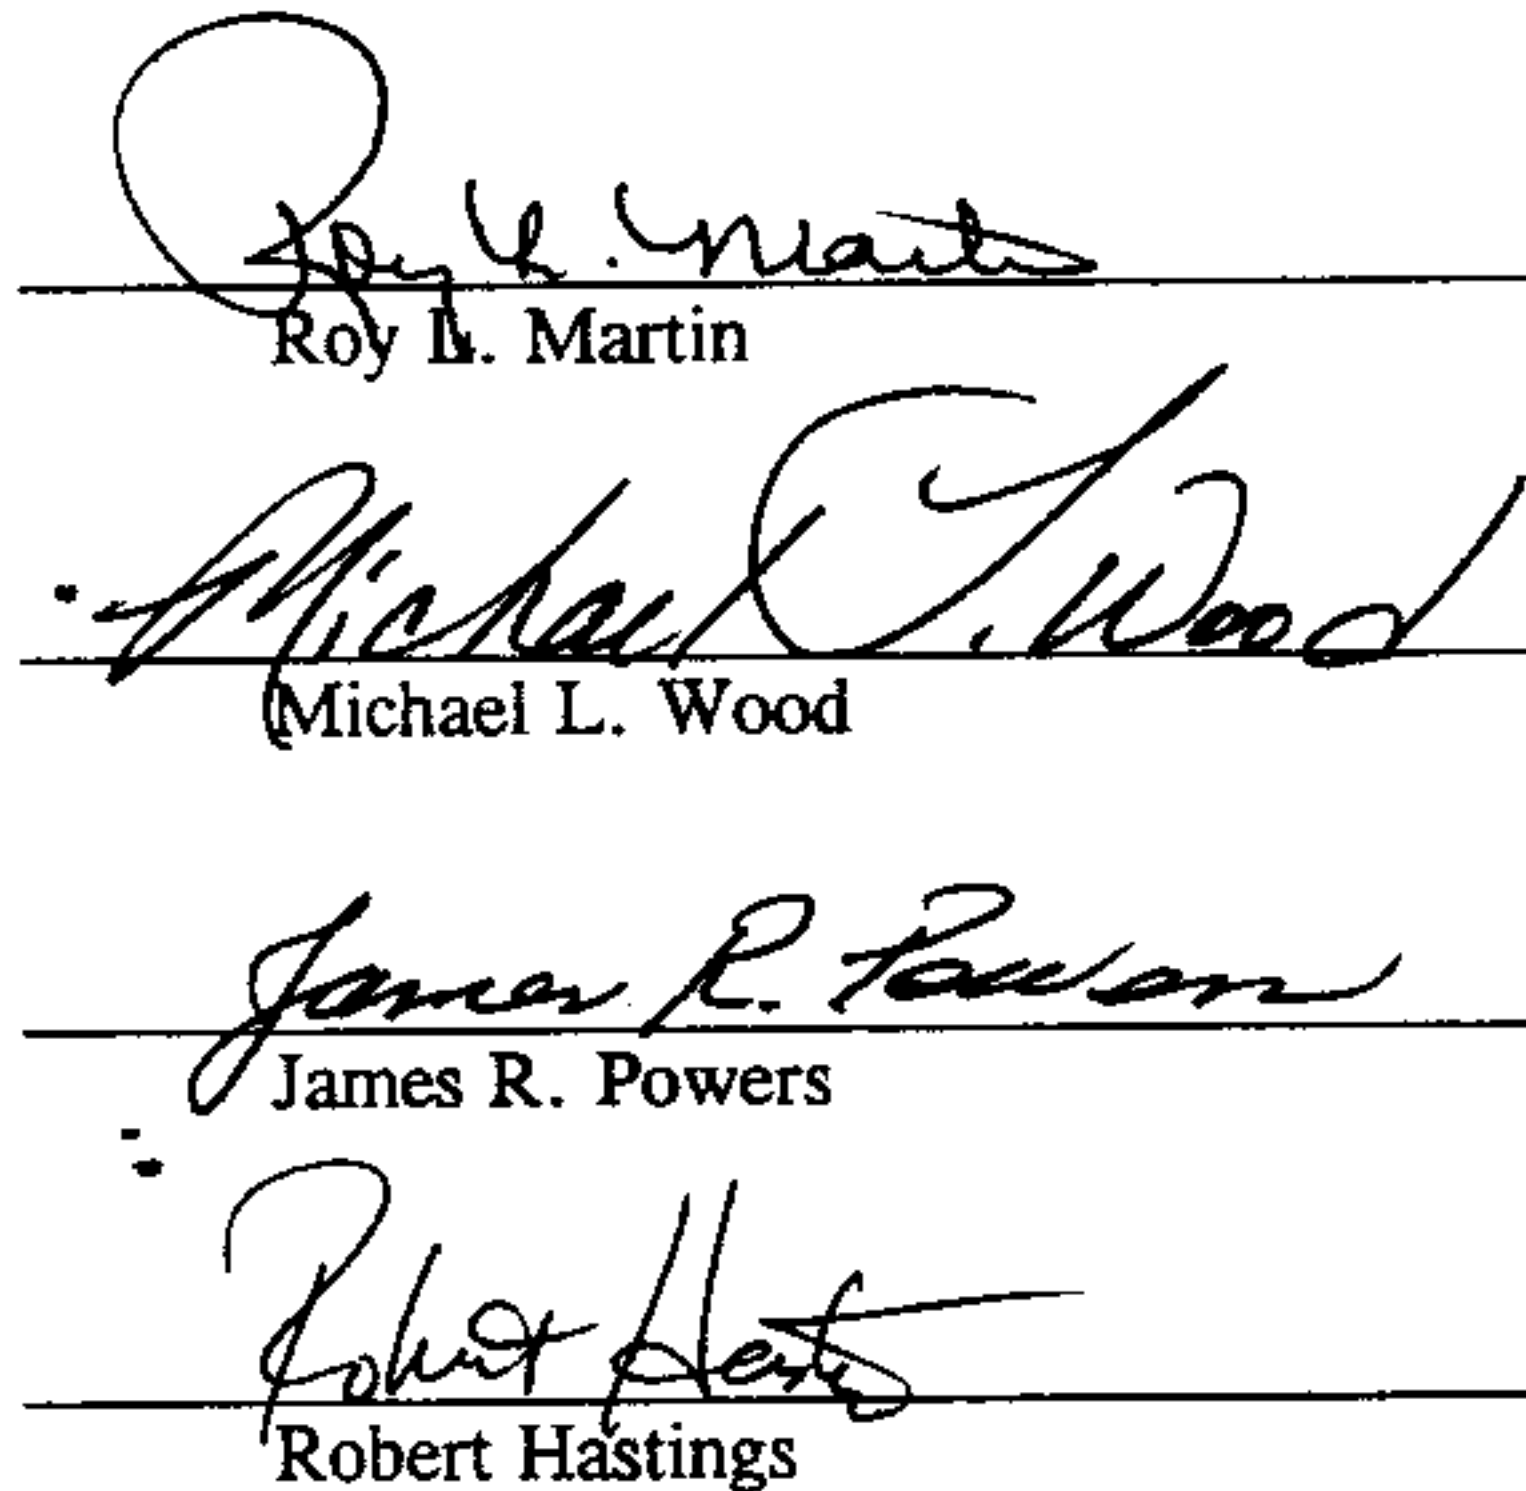 Roy L. Martin
Roy L. Martin
Michael L. Wood
Michael L. Wood
James R. Powers
James R. Powers
Robert Hastings
Robert Hastings